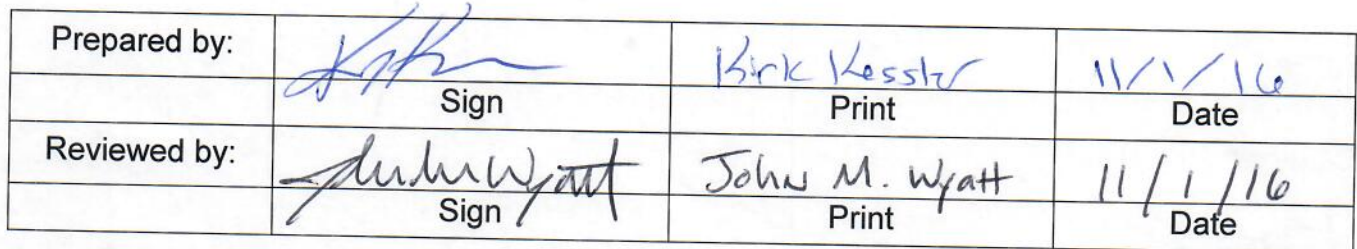 Prepared by: Kirk Kessler 11/1/16
Sign Print Date
Reviewed by: John M. Wyatt John M. Wyatt 11/1/16
Sign Print Date